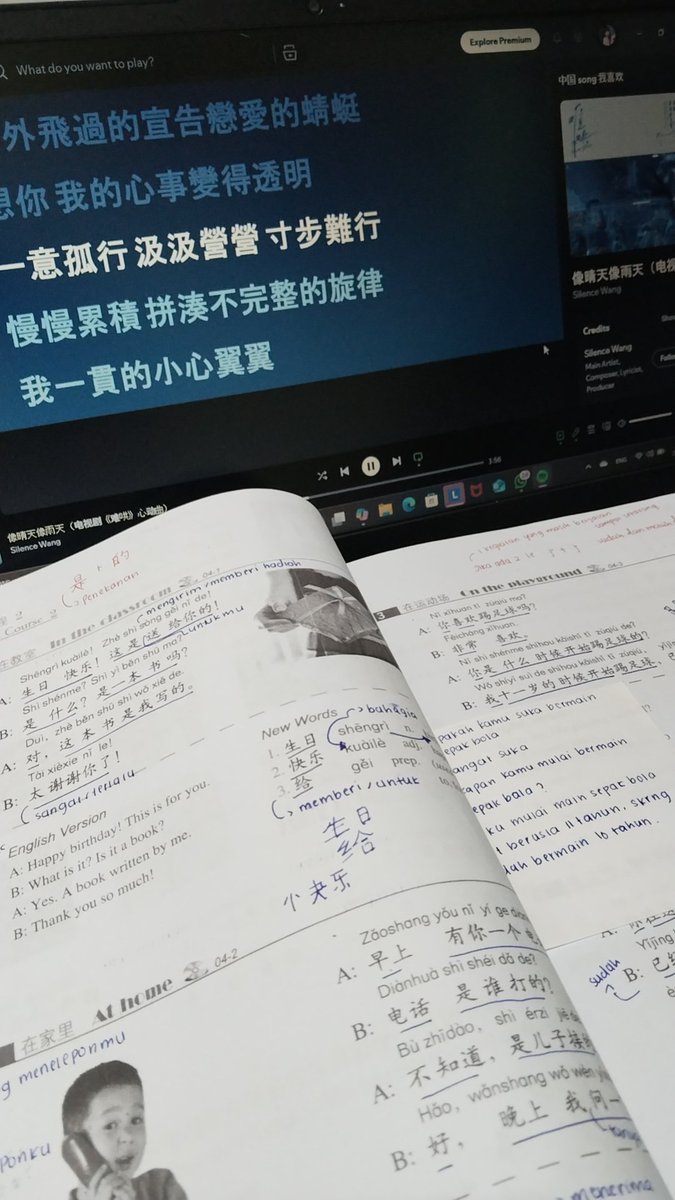 What do you want to play?
Explore Premium
外飛過的宣告戀愛的蜻蜓
想你 我的心事變得透明
一意孤行 汲汲營營 寸步難行
慢慢累積 拼湊不完整的旋律
我一貫的小心翼翼
中国 song 我喜欢
像晴天像雨天（电视
Silence Wang
Credits
Silence Wang
Main Artist,
Composer, Lyricist,
Producer
3:56
像晴天像雨天（电视剧《难哄》心动曲）
Silence Wang
是、的
Penekanan
Course 2
In the classroom 04-1
mengirim/memberi hadiah
在教室
Shēngrì kuàilè! Zhè shì sòng gěi nǐ de!
A: 生日 快乐！这是送给你的！
untukmu
Shì shénme? Shì yì běn shū ma?
B: 是 什么？是一本 书 吗？
Duì, zhè běn shū shì wǒ xiě de.
A: 对，这 本 书 是 我 写的。
Tài xièxie nǐ le!
B: 太 谢谢 你 了！
sangat/terlalu
English Version
A: Happy birthday! This is for you.
B: What is it? Is it a book?
A: Yes. A book written by me.
B: Thank you so much!
New Words
bahagia
1. 生日 shēngrì n.
2. 快乐 kuàilè adj.
3. 给 gěi prep.
memberi/untuk
生日
给
快乐
04-2
At home
在家里
meneleponmu
Zǎoshang yǒu nǐ yí ge
A: 早上 有你一个
Diànhuà shì shéi dǎ de?
B: 电话 是 谁 打 的？
Bù zhīdào, shì érzi
A: 不 知道，是儿子
Hǎo, wǎnshang wǒ wèn
B: 好， 晚上 我问一
menerima
3 在运动场 On the playground
Nǐ xǐhuan tī zúqiú ma?
A: 你喜欢踢足球吗？
Fēicháng xǐhuan.
B: 非常 喜欢。
Nǐ shì shénme shíhou kāishǐ tī zúqiú de?
A: 你是什么时候开始踢足球的？
Wǒ shíyī suì de shíhou kāishǐ tī zúqiú,
B: 我十一岁的时候开始踢足球，
kamu suka bermain
epak bola
suka
kapan kamu mulai bermain
epak bola?
ku mulai main sepak bola
berusia 11 tahun, skrng
bermain 10 tahun.
sudah
Yǐjīng
B: 已经